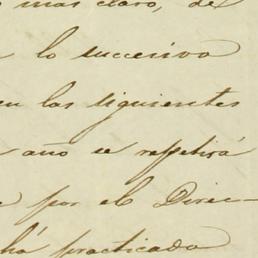 mas claro, de
lo sucesivo
en las siguientes
año se repetirá
por el Direc-
há practicado